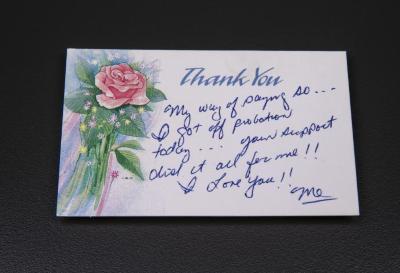 Thank You
My way of saying so...
I got off probation
today... your support
did it all for me!!
I Love You!!
Me